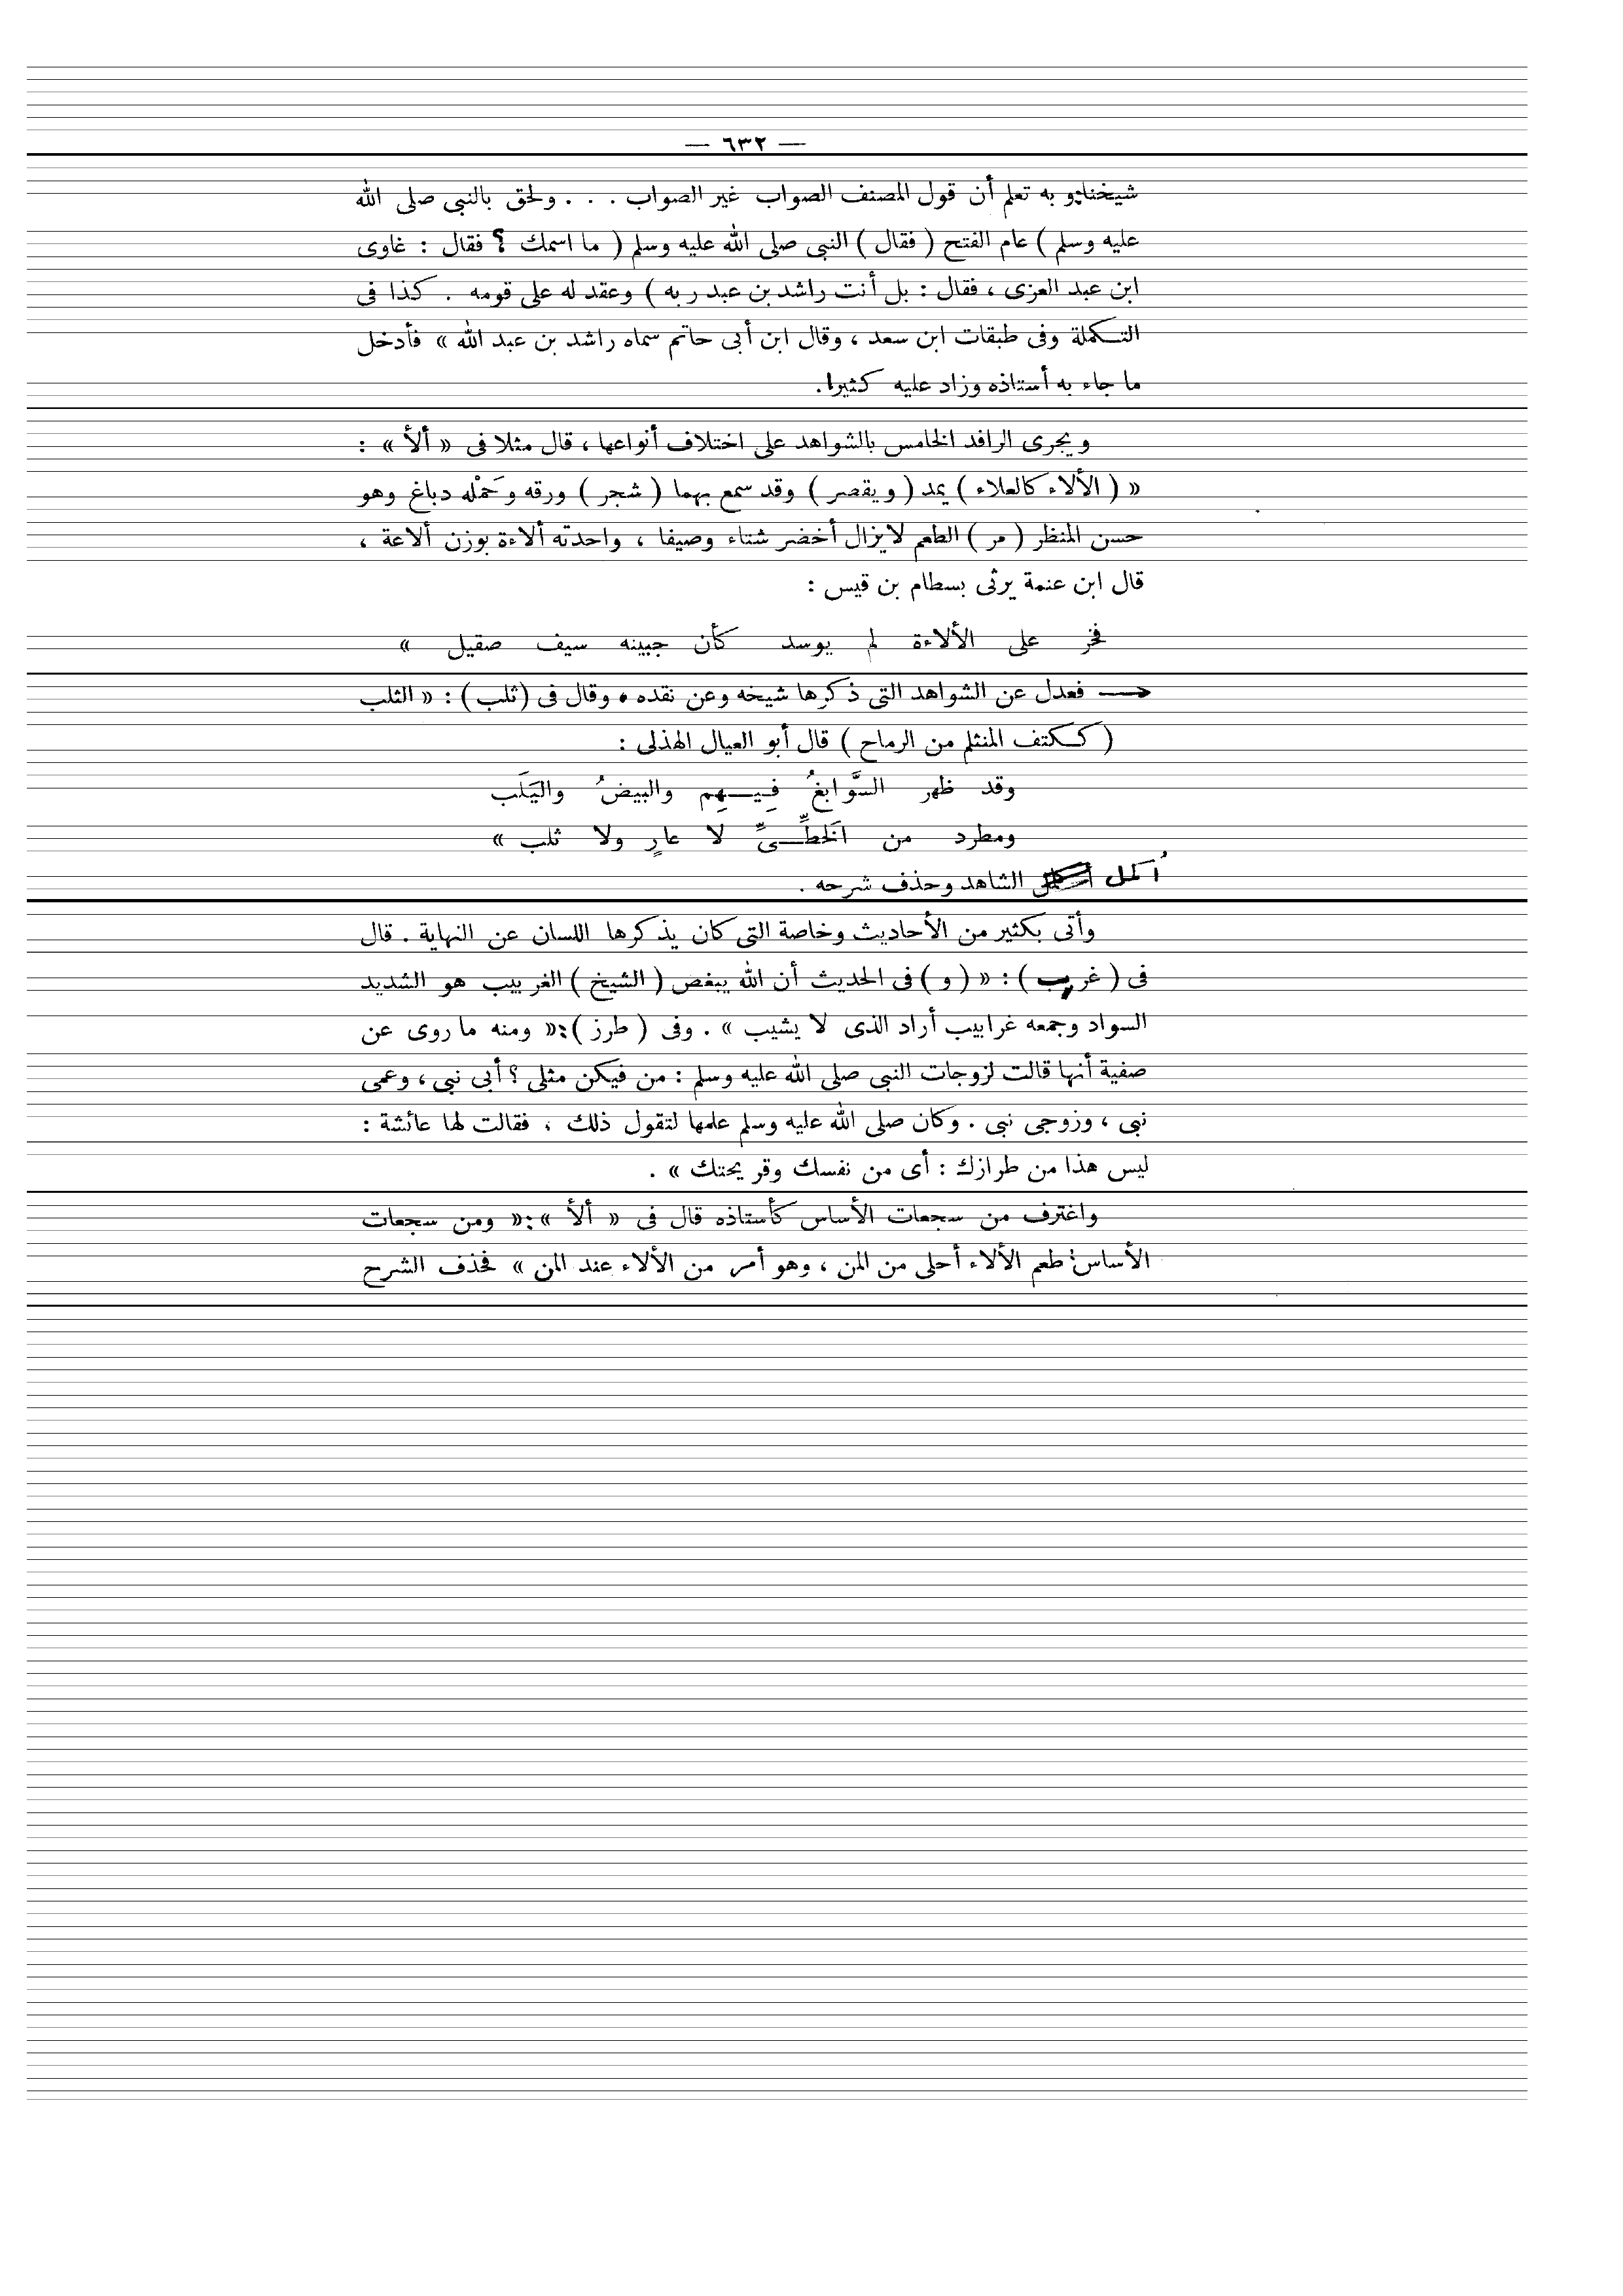 — ٦٣٢ —
شيخنا: و به تعلم أن قول المصنف الصواب غير الصواب . . . ولحق بالنبى صلى الله
عليه وسلم ) عام الفتح ( فقال ) النبى صلى الله عليه وسلم ( ما اسمك ؟ فقال : غاوى
ابن عبد العزى ، فقال : بل أنت راشد بن عبد ربه ) وعقد له على قومه . كذا فى
التكملة وفى طبقات ابن سعد ، وقال ابن أبى حاتم سماه راشد بن عبد الله » فأدخل
ما جاء به أستاذه وزاد عليه كثيرا.
ويجرى الرافد الخامس بالشواهد على اختلاف أنواعها ، قال مثلا فى « ألأ » :
« ( الألاء كالعلاء ) يمد ( ويقصر ) وقد سمع بهما ( شجر ) ورقه وحَمْله دباغ وهو
حسن المنظر ( مر ) الطعم لايزال أخضر شتاء وصيفا ، واحدته ألاءة بوزن ألاعة ،
قال ابن عنمة يرثى بسطام بن قيس :
فخر على الألاءة لم يوسد كأن جبينه سيف صقيل »
فعدل عن الشواهد التى ذكرها شيخه وعن نقده . وقال فى (ثلب) : « الثلب
( ككتف المنثلم من الرماح ) قال أبو العيال الهذلى :
وقد ظهر السَّوابغُ فِيهِم والبيضُ واليَلَب
ومطرد من الخَطِّىِّ لا عارٍ ولا ثلب »
أكمل الشاهد وحذف شرحه .
وأتى بكثير من الأحاديث وخاصة التى كان يذكرها اللسان عن النهاية . قال
فى ( غرب ) : « ( و ) فى الحديث أن الله يبغض ( الشيخ ) الغربيب هو الشديد
السواد وجمعه غرابيب أراد الذى لا يشيب » . وفى ( طرز ):« ومنه ما روى عن
صفية أنها قالت لزوجات النبى صلى الله عليه وسلم : من فيكن مثلى ؟ أبى نبى ، وعمى
نبى ، وزوجى نبى . وكان صلى الله عليه وسلم علمها لتقول ذلك ، فقالت لها عائشة :
ليس هذا من طرازك : أى من نفسك وقريحتك » .
واغترف من سجعات الأساس كأستاذه قال فى « ألأ »:« ومن سجعات
الأساس: طعم الألاء أحلى من المن ، وهو أمر من الألاء عند المن » فحذف الشرح